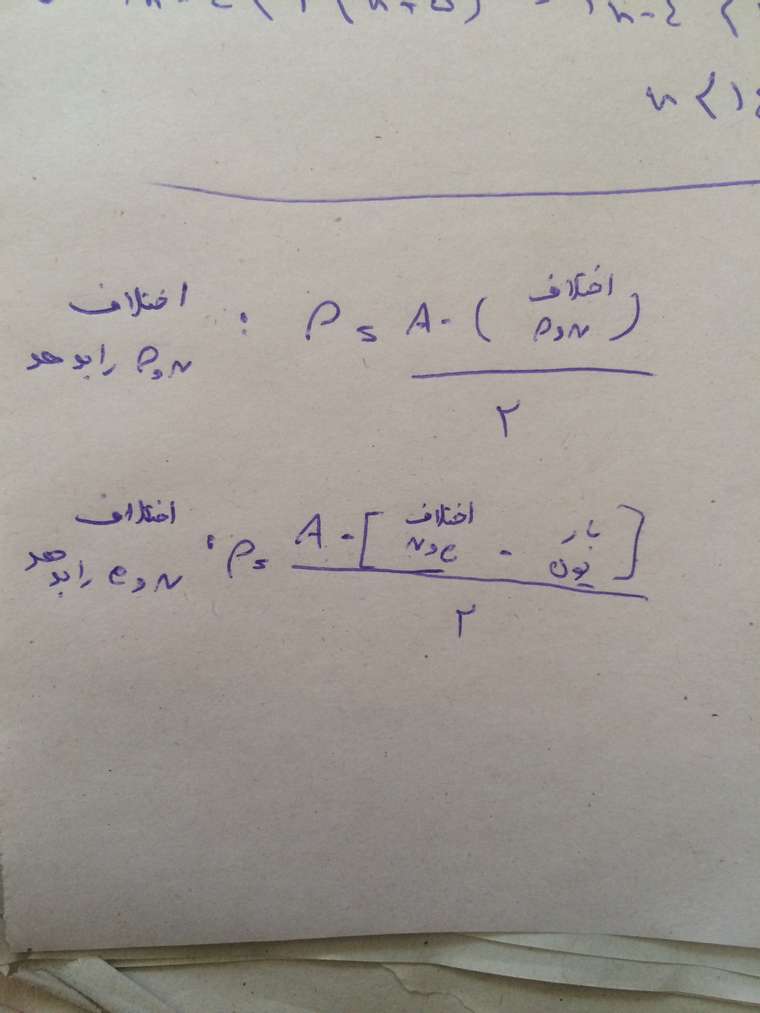 2n-4 < 2(n+5)
n < 14
اختلاف N و P را بدهد : P = A - (اختلاف N و P) / ۲
اختلاف N و e را بدهد : P = A - [اختلاف N و e - بار یون] / ۲